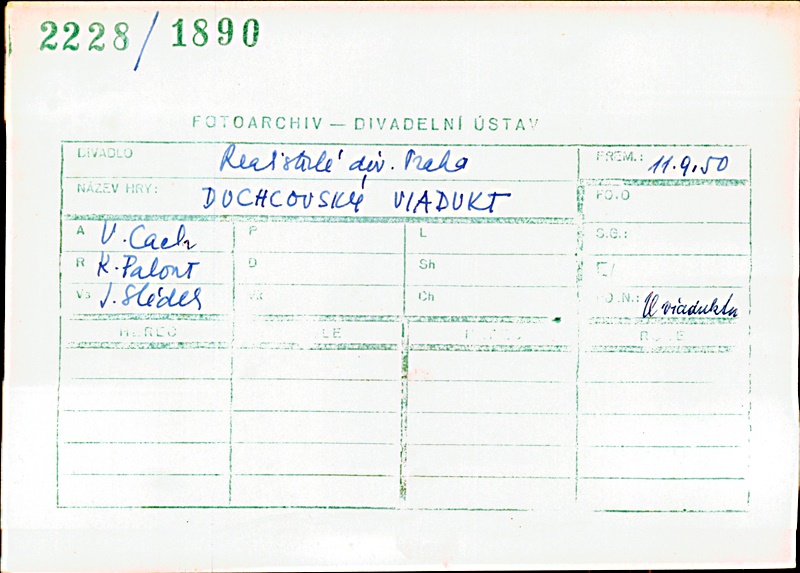 2228/1890
FOTOARCHIV — DIVADELNÍ ÚSTAV
DIVADLO Realistické div. Praha PREM.: 11.9.50
NÁZEV HRY: DUCHCOVSKÝ VIADUKT FO.O
A V. Cach P L S.G.:
R K. Palouš D Sh E/
Vs J. Sládek Vk Ch FO.N.: U viaduktu
HEREC ROLE ROLE